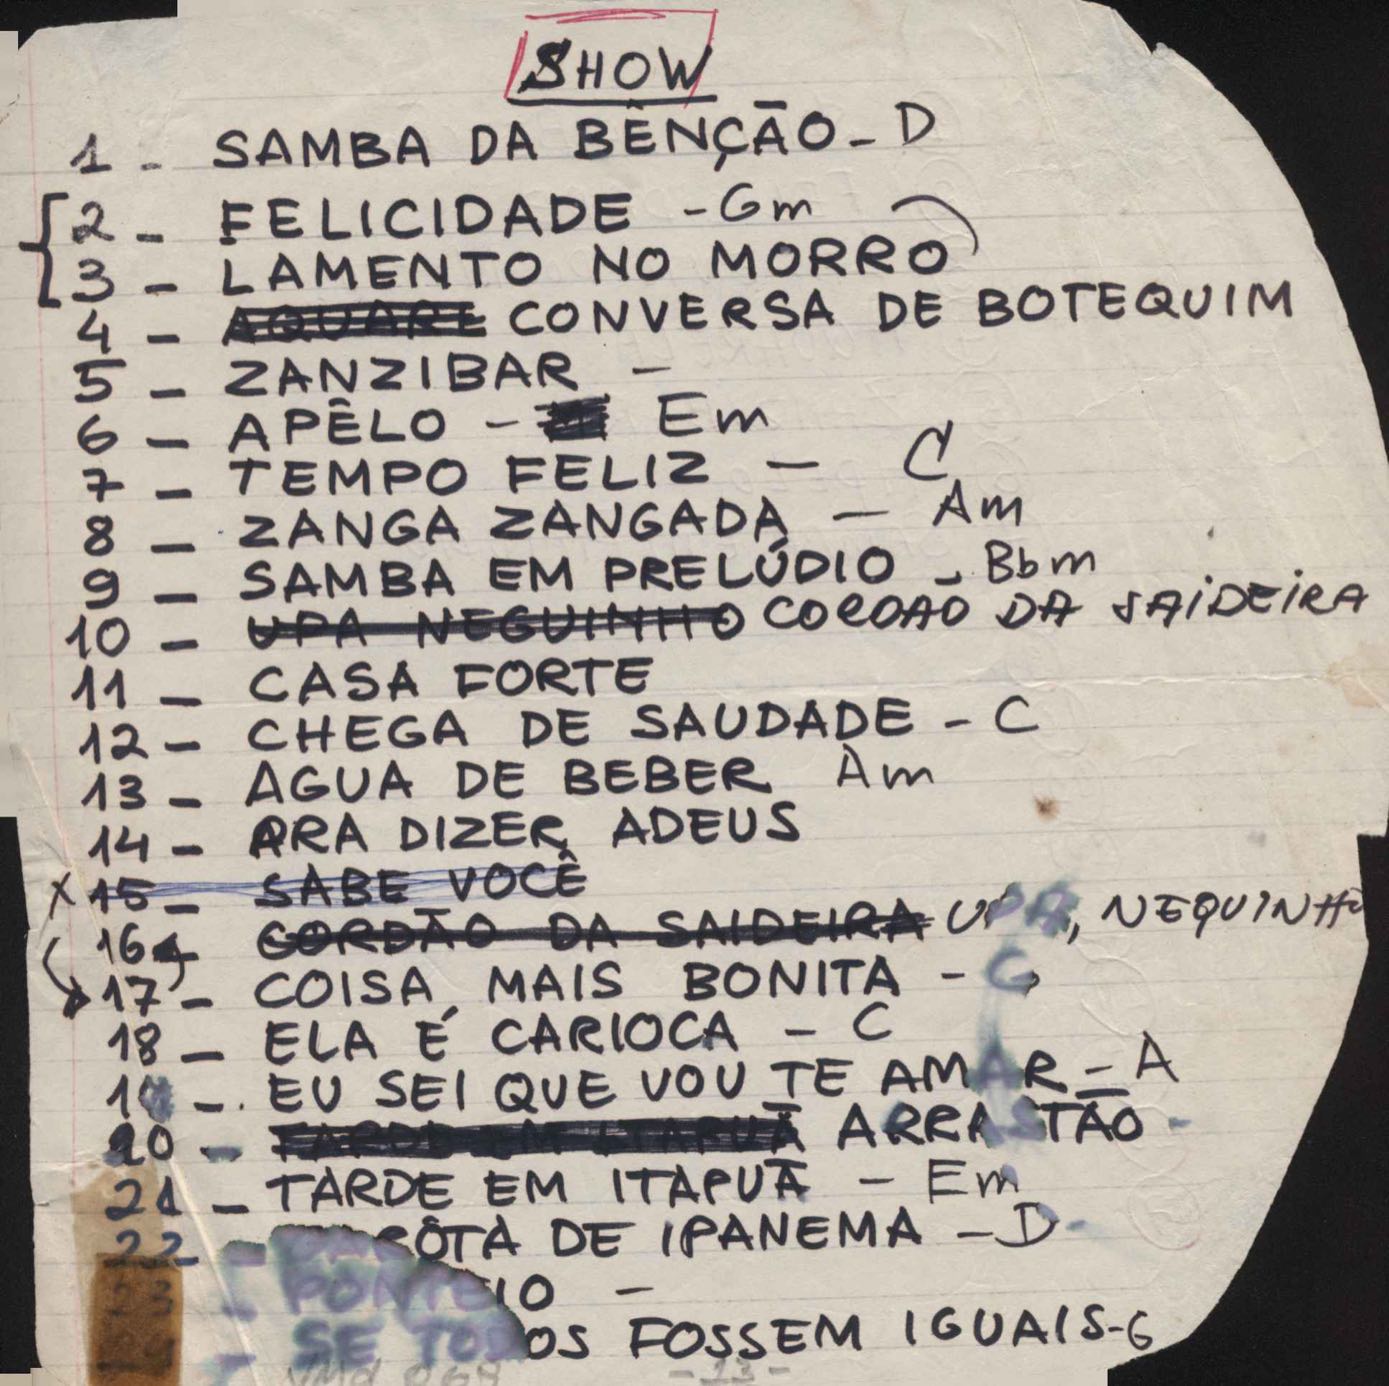 SHOW
1 - SAMBA DA BÊNÇÃO - D
2 - FELICIDADE - Gm
3 - LAMENTO NO MORRO
4 - AQUARE CONVERSA DE BOTEQUIM
5 - ZANZIBAR -
6 - APÊLO - Em
7 - TEMPO FELIZ - C
8 - ZANGA ZANGADA - Am
9 - SAMBA EM PRELÚDIO - Bbm
10 - UPA NEGUINHO CORDAO DA SAIDEIRA
11 - CASA FORTE
12 - CHEGA DE SAUDADE - C
13 - AGUA DE BEBER Am
14 - PRA DIZER ADEUS
X 15 - SABE VOCÊ
16 - CORDÃO DA SAIDEIRA UPA, NEQUINHO
17 - COISA MAIS BONITA - G
18 - ELA É CARIOCA - C
19 - EU SEI QUE VOU TE AMAR - A
20 - TARDE EM ITAPUÃ ARRASTÃO -
21 - TARDE EM ITAPUÃ - Em
22 - GARÔTA DE IPANEMA - D
23 - PONTEIO -
- SE TODOS FOSSEM IGUAIS - G
- 13 -